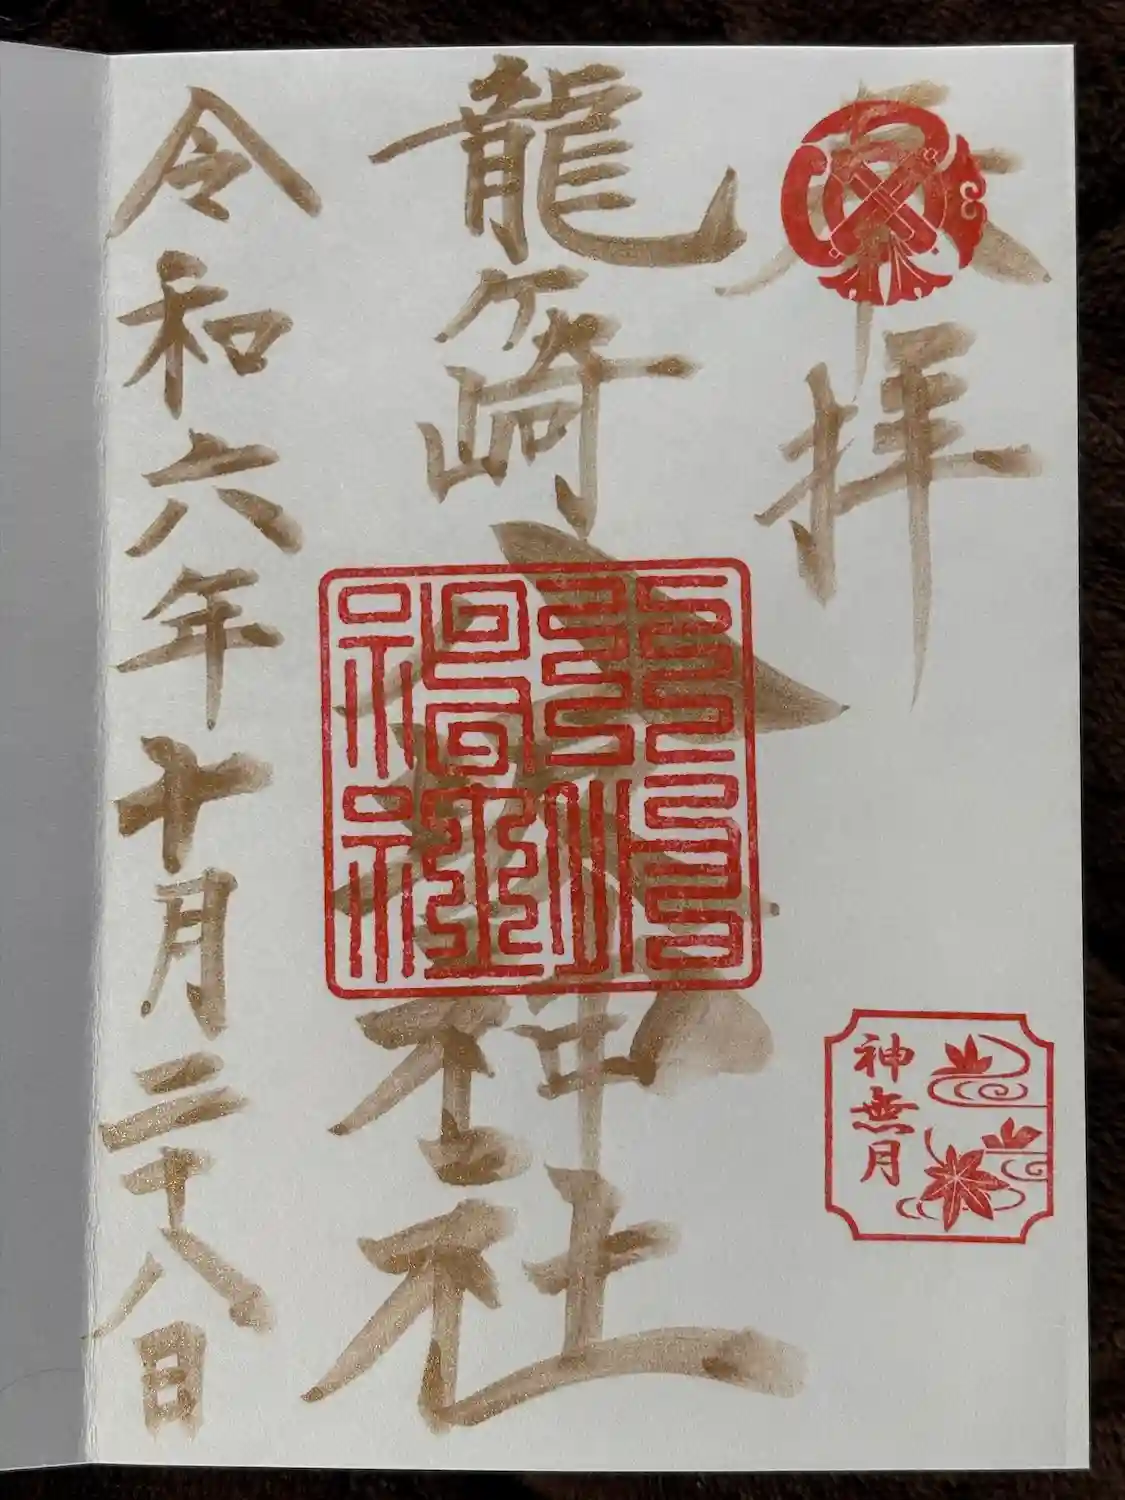 奉拝
龍ケ崎八坂神社
令和六年十月二十八日
神無月